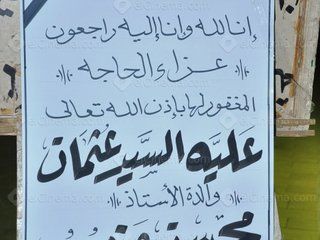 إنا لله وإنا إليه راجعون
عزاء الحاجه
المغفور لها بإذن الله تعالى
عليه السيد عثمان
والدة الأستاذ
elCinema.com